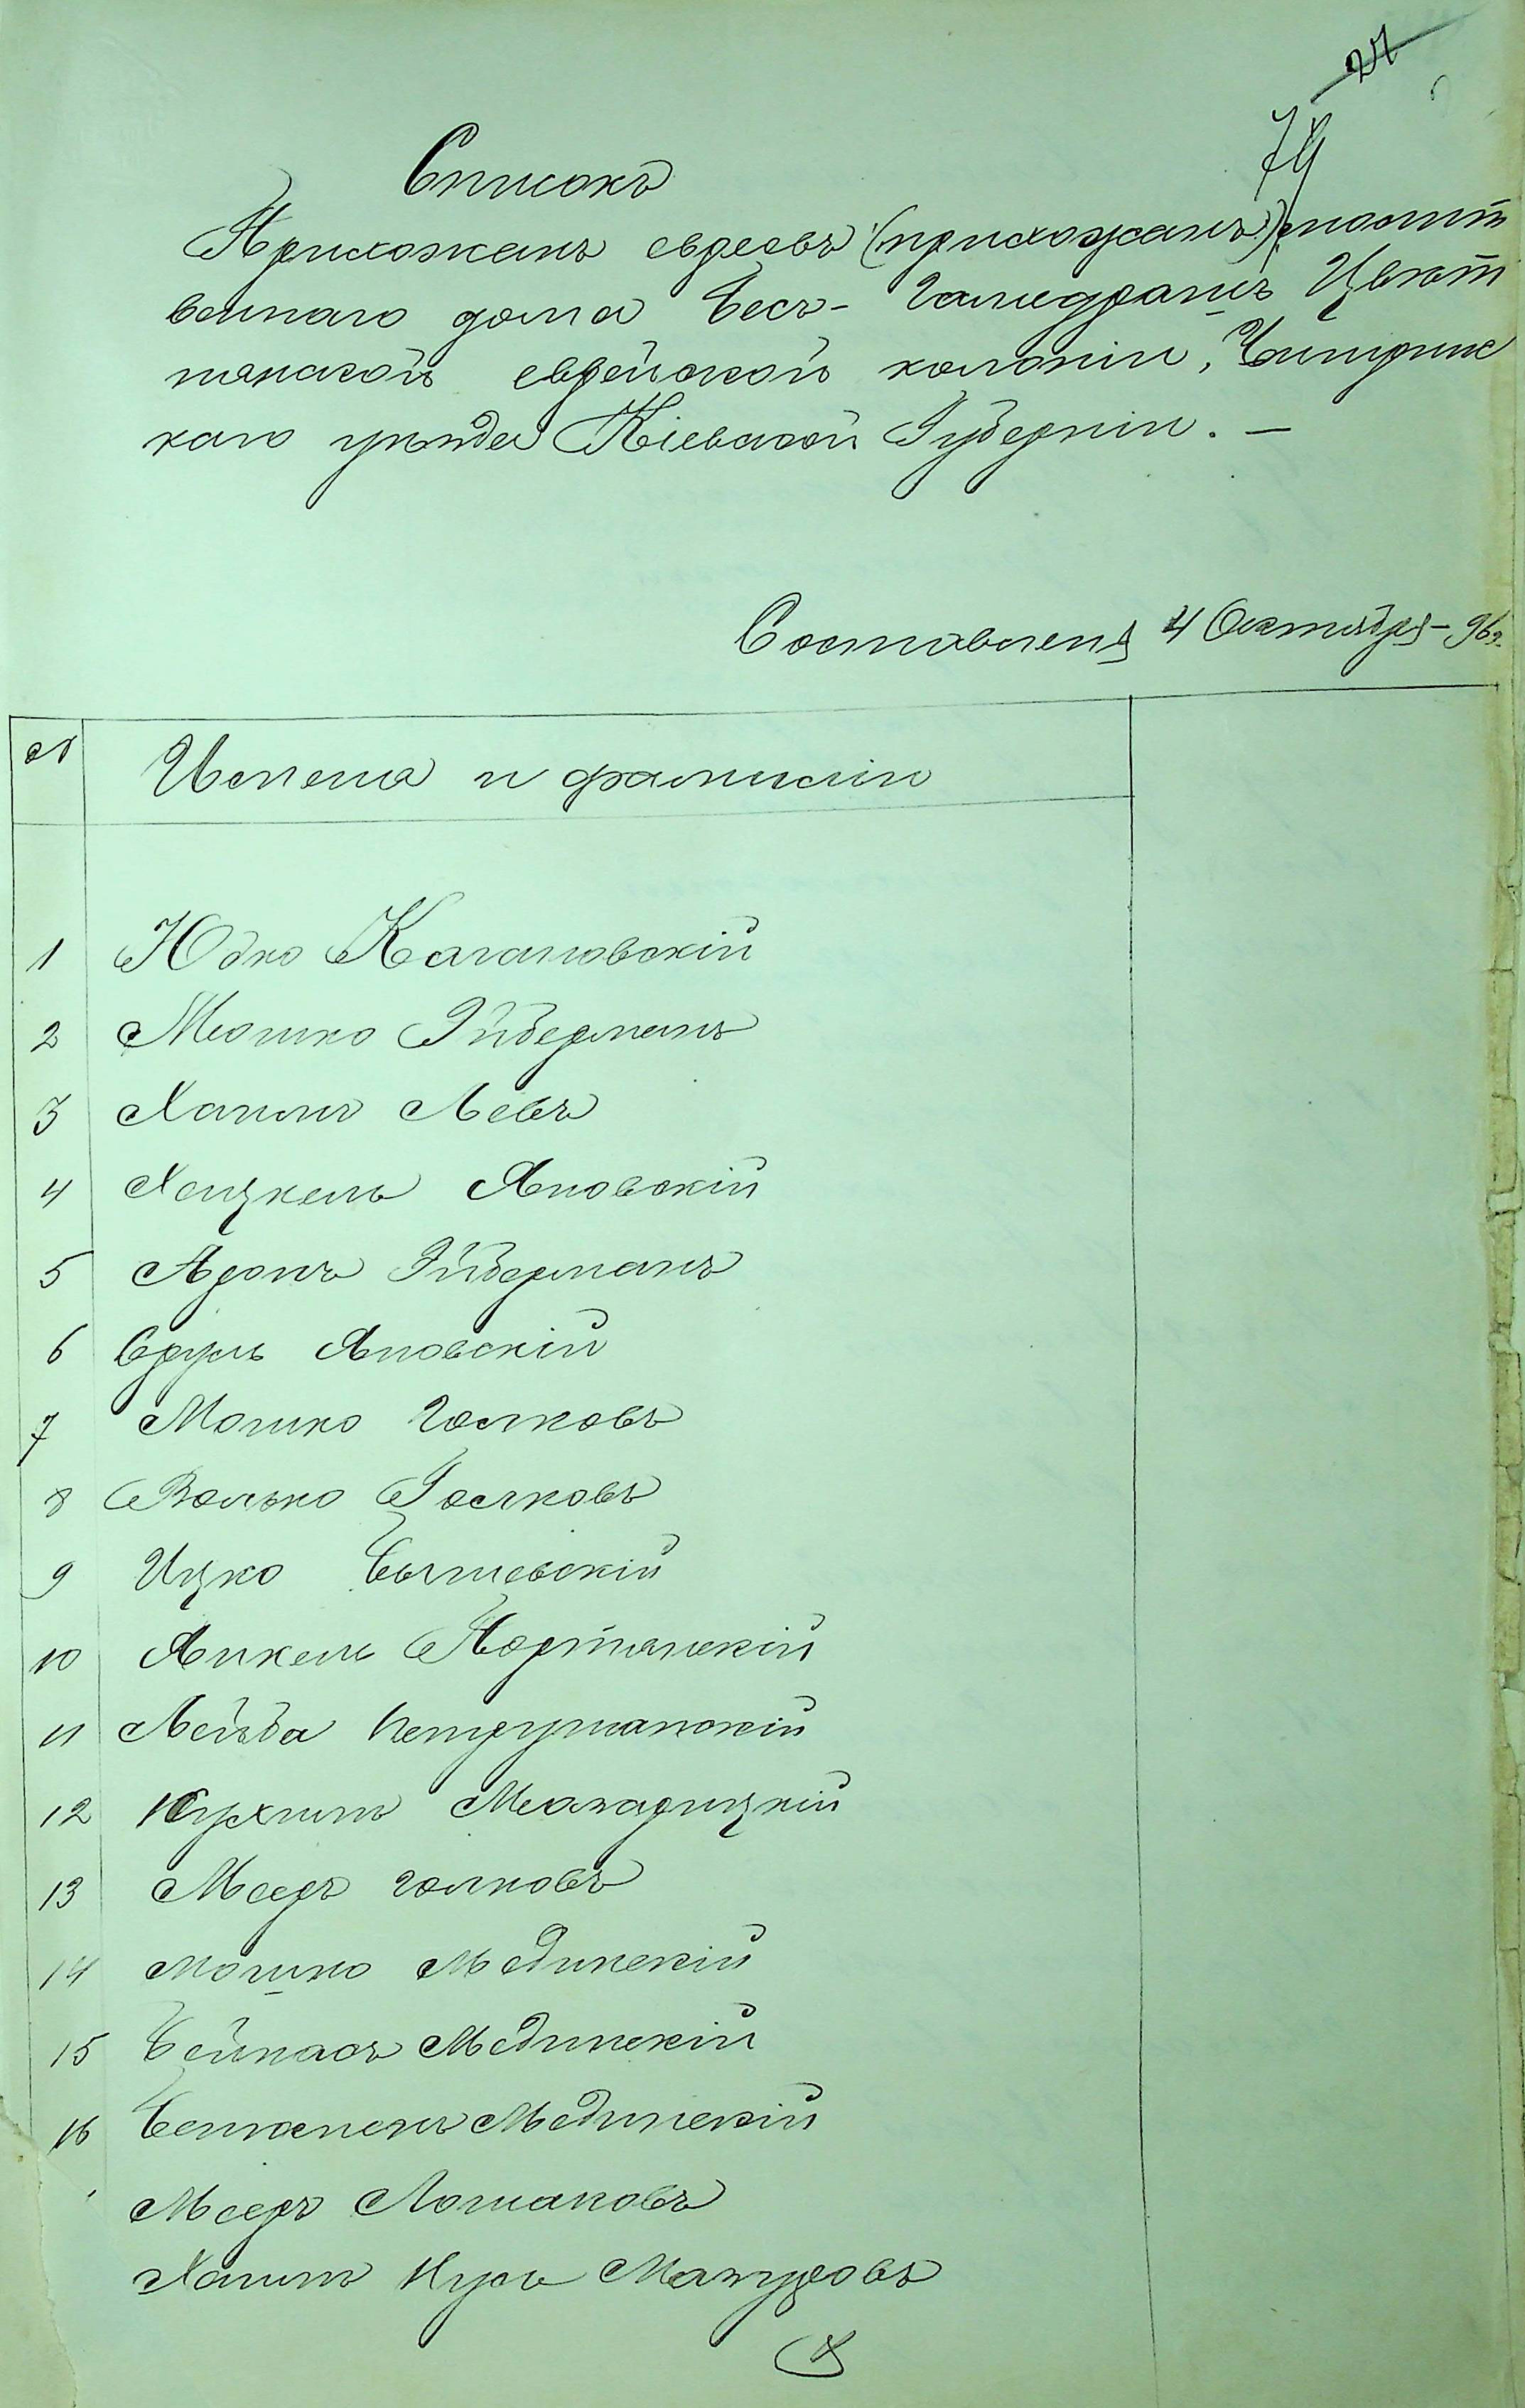 27
74
Списокъ
Прихожанъ евреевъ (прихожанъ) молит
веннаго дома Бесъ-Гамедрашъ Цвѣт
танской еврейской колонiи, Чигринс
каго уѣзда Кiевской Губернiи. —
Составленъ 4 Октября - 96 г.
№ Имена и фамилiи
1 Юдко Кагановскiй
2 Мошко Гиберманъ
3 Хаимъ Левъ
4 Хацкель Яновскiй
5 Аронъ Гиберманъ
6 Сруль Яновскiй
7 Мошко Голковъ
8 Волько Голковъ
9 Ицко Бышевскiй
10 Янкель Портянскiй
11 Лейба Петрушанскiй
12 Нухимъ Межарицкiй
13 Мееръ Голковъ
14 Мошко Мединскiй
15 Бейнасъ Мединскiй
16 Бенiоменъ Мединскiй
Мееръ Лошаковъ
Хаимъ Нусъ Мажуровъ